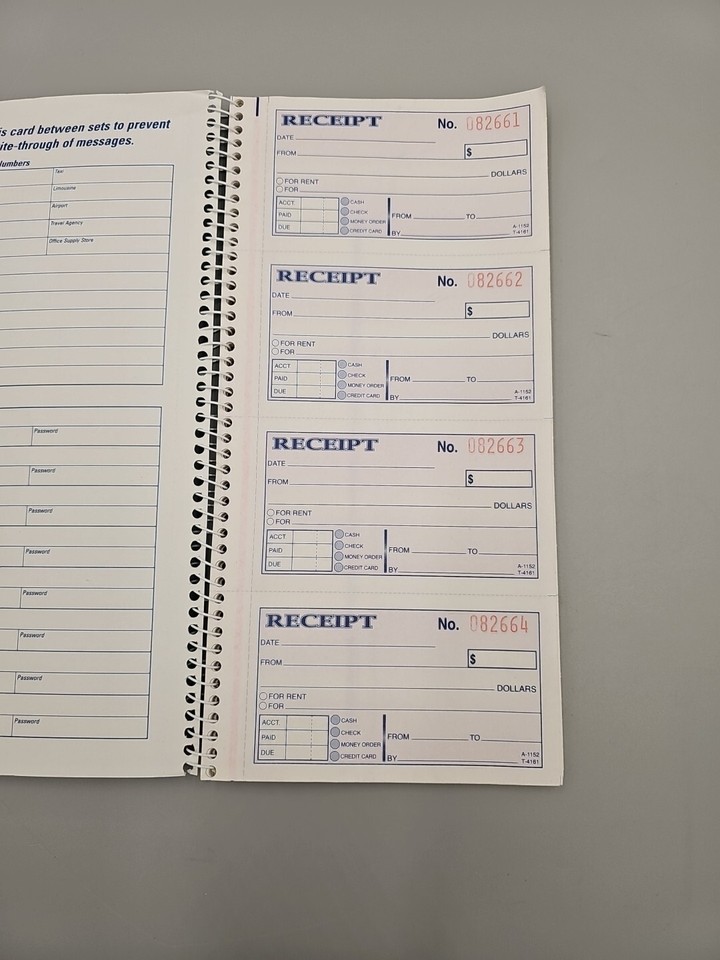 is card between sets to prevent
ite-through of messages.
Numbers
Taxi
Limousine
Airport
Travel Agency
Office Supply Store
Password
Password
Password
Password
Password
Password
Password
Password
RECEIPT No. 082661
DATE
FROM $
DOLLARS
FOR RENT
FOR
ACCT. CASH
PAID CHECK FROM TO
MONEY ORDER
DUE CREDIT CARD BY A-1152
T-4161
RECEIPT No. 082662
DATE
FROM $
DOLLARS
FOR RENT
FOR
ACCT. CASH
PAID CHECK FROM TO
MONEY ORDER
DUE CREDIT CARD BY A-1152
T-4161
RECEIPT No. 082663
DATE
FROM $
DOLLARS
FOR RENT
FOR
ACCT. CASH
PAID CHECK FROM TO
MONEY ORDER
DUE CREDIT CARD BY A-1152
T-4161
RECEIPT No. 082664
DATE
FROM $
DOLLARS
FOR RENT
FOR
ACCT. CASH
PAID CHECK FROM TO
MONEY ORDER
DUE CREDIT CARD BY A-1152
T-4161